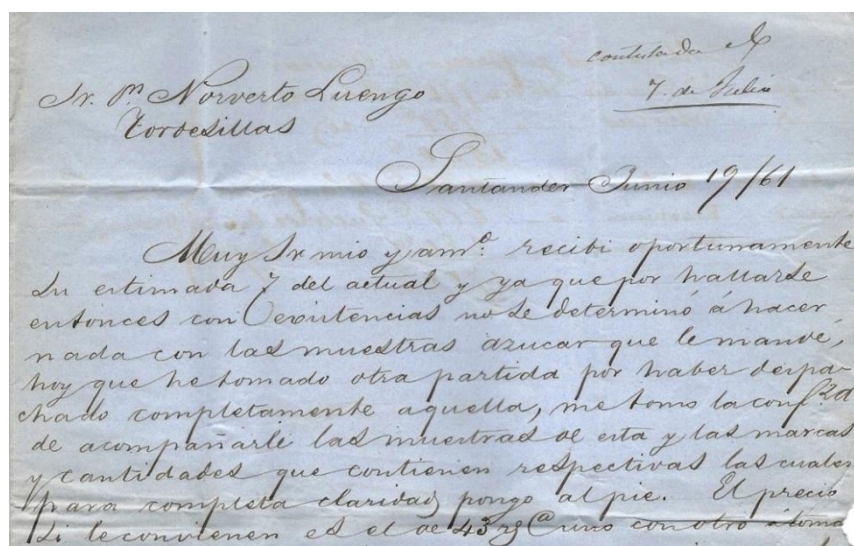 contestada el
7. de Julio
Sr. Dn Norverto Luengo
Tordesillas
Santander Junio 19/61
Muy Sr mio y amo: recibi oportunamente
su estimada 7 del actual y ya que por hallarse
entonces con existencias no se determinó á hacer
nada con las muestras azucar que le mandé,
hoy que he tomado otra partida por haber despa-
chado completamente aquella, me tomo la confzd
de acompañarle las muestras de esta y las marcas
y cantidades que contienen respectivas las cuales
para completa claridad pongo al pie. El precio
si le convienen es el de 43 rs @ uno con otro